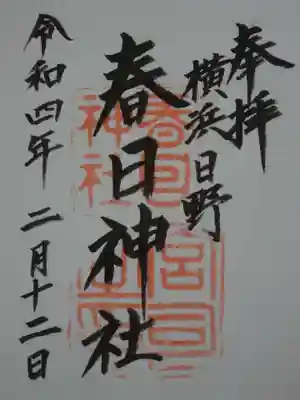 奉拝
横浜日野
春日神社
令和四年二月十二日